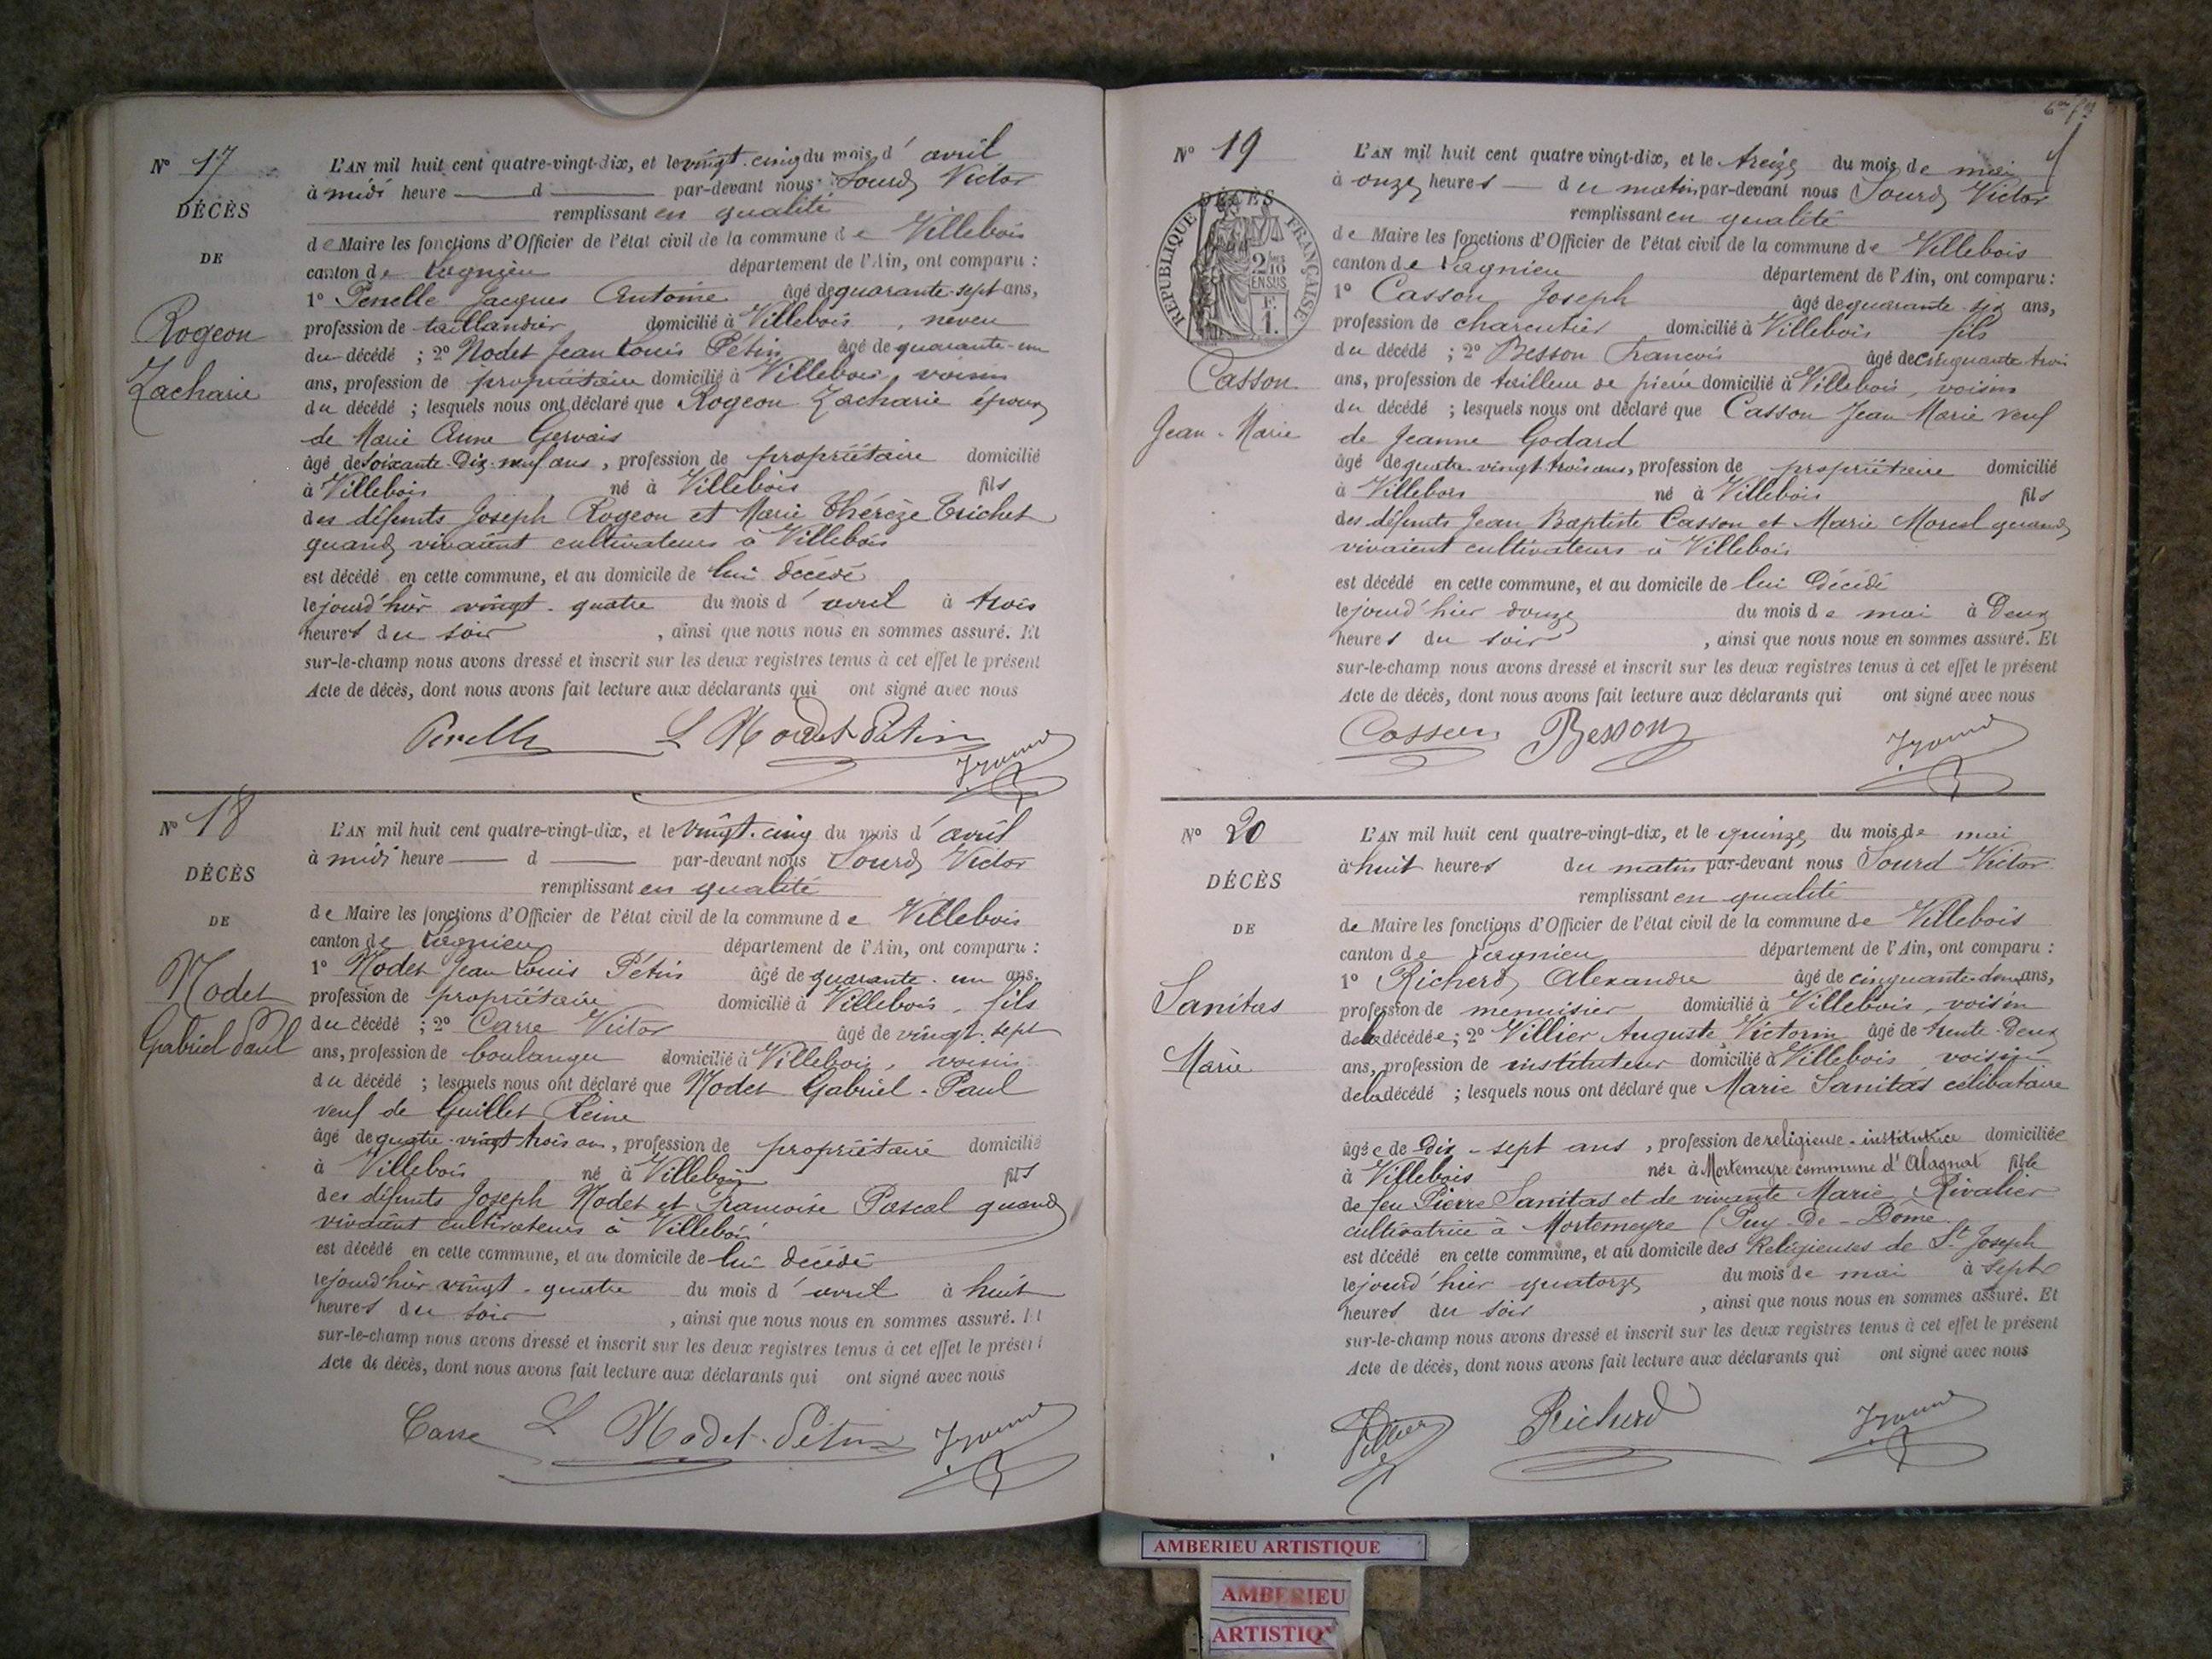 N° 17
DÉCÈS
DE
Rogeon
Zacharie
L'AN mil huit cent quatre-vingt-dix, et le vingt-cinq du mois d'avril
à midi heure d par-devant nous Sourd Victor
remplissant en qualité
de Maire les fonctions d'Officier de l'état civil de la commune de Villebois
canton de Lagnieu département de l'Ain, ont comparu :
1° Jacques Antoine âgé de quarante-sept ans,
profession de taillandier domicilié à Villebois, neveu
du décédé ; 2° Nodet Jean Louis Pétin âgé de quarante-un
ans, profession de propriétaire domicilié à Villebois, voisin
du décédé ; lesquels nous ont déclaré que Rogeon Zacharie époux
de Marie Anne Gervais
âgé de soixante-dix-neuf ans, profession de propriétaire domicilié
à Villebois né à Villebois fils
des défunts Joseph Rogeon et Marie Thérèze Trichet
quand vivaient cultivateurs à Villebois
est décédé en cette commune, et au domicile de lui décédé
le jourd'hier vingt-quatre du mois d'avril à trois
heures du soir, ainsi que nous nous en sommes assuré. Et
sur-le-champ nous avons dressé et inscrit sur les deux registres tenus à cet effet le présent
Acte de décès, dont nous avons fait lecture aux déclarants qui ont signé avec nous
L Nodet-Pétin
N° 18
DÉCÈS
DE
Nodet
Gabriel Paul
L'AN mil huit cent quatre-vingt-dix, et le vingt-cinq du mois d'avril
à midi heure d par-devant nous Sourd Victor
remplissant en qualité
de Maire les fonctions d'Officier de l'état civil de la commune de Villebois
canton de Lagnieu département de l'Ain, ont comparu :
1° Nodet Jean Louis Pétin âgé de quarante-un ans,
profession de propriétaire domicilié à Villebois, fils
du décédé ; 2° Carre Victor âgé de vingt-sept
ans, profession de boulanger domicilié à Villebois, voisin
du décédé ; lesquels nous ont déclaré que Nodet Gabriel-Paul
veuf de Guillet Reine
âgé de quatre-vingt trois ans, profession de propriétaire domicilié
à Villebois né à Villebois fils
des défunts Joseph Nodet et Francoise Pascal quand
vivaient cultivateurs à Villebois
est décédé en cette commune, et au domicile de lui décédé
le jourd'hier vingt-quatre du mois d'avril à huit
heures du soir, ainsi que nous nous en sommes assuré. Et
sur-le-champ nous avons dressé et inscrit sur les deux registres tenus à cet effet le présent
Acte de décès, dont nous avons fait lecture aux déclarants qui ont signé avec nous
Carre L Nodet-Pétin
N° 19
DÉCÈS
RÉPUBLIQUE FRANÇAISE
2/10
EN SUS
F.
1.
Casson
Jean-Marie
L'AN mil huit cent quatre vingt-dix, et le treize du mois de mai
à onze heures du matin par-devant nous Sourd Victor
remplissant en qualité
de Maire les fonctions d'Officier de l'état civil de la commune de Villebois
canton de Lagnieu département de l'Ain, ont comparu :
1° Casson Joseph âgé de quarante-six ans,
profession de charcutier domicilié à Villebois fils
du décédé ; 2° Besson Francois âgé de cinquante trois
ans, profession de tailleur de pierre domicilié à Villebois, voisin
du décédé ; lesquels nous ont déclaré que Casson Jean Marie veuf
de Jeanne Godard
âgé de quatre-vingt trois ans, profession de propriétaire domicilié
à Villebois né à Villebois fils
des défunts Jean Baptiste Casson et Marie Morel quand
vivaient cultivateurs à Villebois
est décédé en cette commune, et au domicile de lui décédé
le jourd'hier douze du mois de mai à deux
heures du soir, ainsi que nous nous en sommes assuré. Et
sur-le-champ nous avons dressé et inscrit sur les deux registres tenus à cet effet le présent
Acte de décès, dont nous avons fait lecture aux déclarants qui ont signé avec nous
Casson Besson
N° 20
DÉCÈS
DE
Sanitas
Marie
L'AN mil huit cent quatre-vingt-dix, et le quinze du mois de mai
à huit heures du matin par-devant nous Sourd Victor
remplissant en qualité
de Maire les fonctions d'Officier de l'état civil de la commune de Villebois
canton de Lagnieu département de l'Ain, ont comparu :
1° Richerd Alexandre âgé de cinquante-deux ans,
profession de menuisier domicilié à Villebois, voisin
de la décédée ; 2° Villier Auguste Victorin âgé de trente-deux
ans, profession de instituteur domicilié à Villebois voisin
de la décédé ; lesquels nous ont déclaré que Marie Sanitas célibataire
âgée de dix-sept ans, profession de religieuse-institutrice domiciliée
à Villebois née à Mortemeyre commune d'Alagnat fille
de feu Pierre Sanitas et de vivante Marie Rivalier
cultivatrice à Mortemeyre (Puy-de-Dôme
est décédé en cette commune, et au domicile des Religieuses de St Joseph
le jourd'hier quatorze du mois de mai à sept
heures du soir, ainsi que nous nous en sommes assuré. Et
sur-le-champ nous avons dressé et inscrit sur les deux registres tenus à cet effet le présent
Acte de décès, dont nous avons fait lecture aux déclarants qui ont signé avec nous
Villier Richerd
AMBERIEU ARTISTIQUE
AMBERIEU
ARTISTIQ